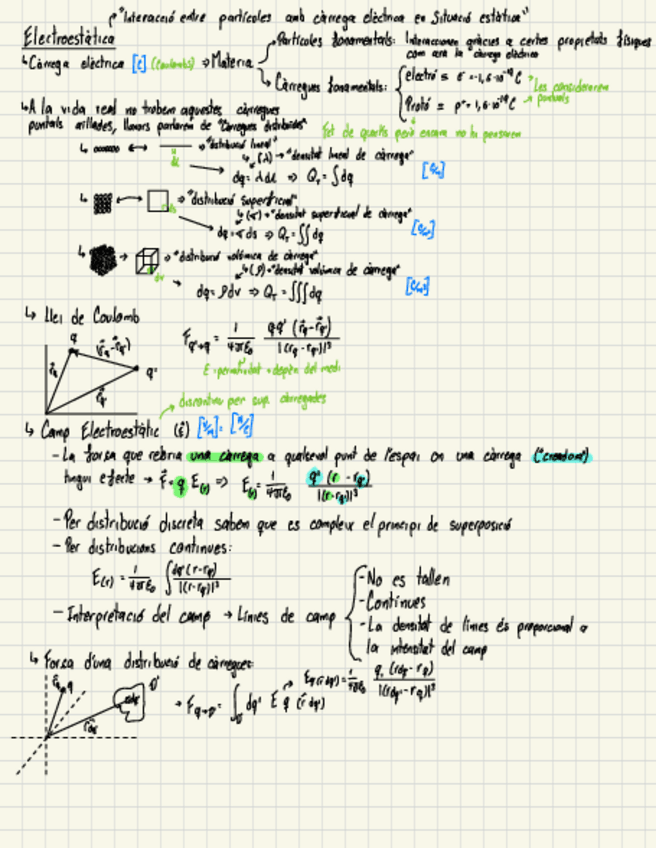 "Interacció entre partícules amb càrrega elèctrica en Situació estàtica"
Electroestàtica
↳ Càrrega elèctrica [C] (Coulombs) ⇒ Matèria
Partícules fonamentals: Interaccionen gràcies a certes propietats físiques
com ara la càrrega elèctrica
Càrregues fonamentals:
electró ≡ e⁻ = -1,6·10⁻¹⁹ C
Protó = p⁺ = 1,6·10⁻¹⁹ C
Les considerarem
puntuals
Fet de quarks però encara no ho pensarem
↳ A la vida real no trobem aquestes càrregues
puntuals aïllades, llavors parlarem de "Càrregues distribuïdes"
↳ ↔ "distribució lineal"
dl
(λ) → "densitat lineal de càrrega"
dq = λ dl ⇒ Q_T = ∫ dq [C/m]
↳ ↔ ⇒ "distribució superficial"
ds
(σ) → "densitat superficial de càrrega"
dq = σ ds ⇒ Q_T = ∫∫ dq [C/m²]
↳ → "distribució volúmica de càrrega"
dv
(ρ) → "densitat volúmica de càrrega"
dq = ρ dv ⇒ Q_T = ∫∫∫ dq [C/m³]
↳ Llei de Coulomb
q (r_q - r_q') q' r_q r_q'
F_q'→q = 1/4πε₀ qq' (r_q - r_q') / |(r_q - r_q')|³
ε: permitivitat → depèn del medi
discontinu per sup. carregades
↳ Camp Electroestàtic (E) [V/m] = [N/C]
- La força que rebria una càrrega a qualsevol punt de l'espai on una càrrega ("creadora")
tingui efecte → F = q E(r) ⇒ E(r) = 1/4πε₀ q' (r - r_q') / |(r - r_q')|³
- Per distribució discreta sabem que es compleix el principi de superposició
- Per distribucions contínues:
E(r) = 1/4πε₀ ∫ dq' (r - r_q') / |(r - r_q')|³
- Interpretació del camp → Línies de camp
- No es tallen
- Contínues
- La densitat de línies és proporcional a
la intensitat del camp
↳ Força d'una distribució de càrregues: